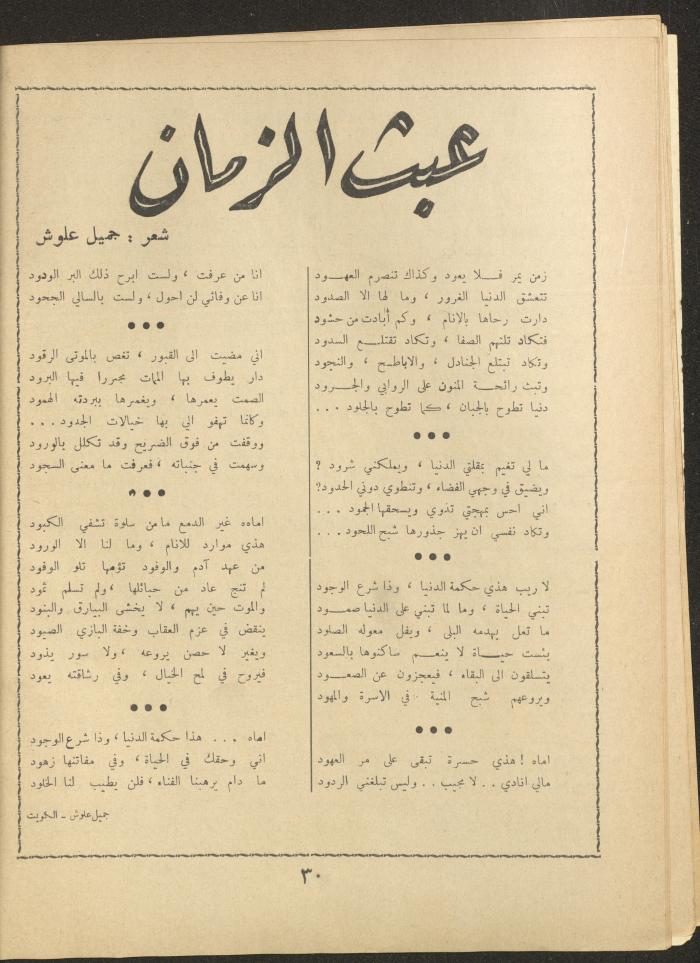 عبث الزمان
شعر : جميل علوش
زمن يمر فلا يعود وكذاك تنصرم العهود
تتعشق الدنيا الغرور ، وما لها الا الصدود
دارت رحاها بالانام ، وكم أبادت من حشود
فتكاد تلتهم الصفا ، وتكاد تقتلع السدود
وتكاد تبتلع الجنادل ، والاباطح ، والنجود
وتبث رائحة المنون على الروابي والجرود
دنيا تطوح بالجبان ، كما تطوح بالجلود . . .
●●●
ما لي تغيم بمقلتي الدنيا ، ويملكني شرود ؟
ويضيق في وجهي الفضاء ، وتنطوي دوني الحدود؟
اني احس بمهجتي تذوي ويسحقها الجمود . . .
وتكاد نفسي ان يهز جذورها شبح اللحود . . .
●●●
لا ريب هذي حكمة الدنيا ، وذا شرع الوجود
تبني الحياة ، وما لما تبني على الدنيا صمود
ما تعل يهدمه البلى ، ويفل معوله الصلود
بئست حياة لا ينعم ساكنوها بالسعود
يتسلقون الى البقاء ، فيعجزون عن الصعود
ويروعهم شبح المنية في الاسرة والمهود
●●●
اماه ! هذي حسرة تبقى على مر العهود
مالي انادي . . لا مجيب . . وليس تبلغني الردود
انا من عرفت ، ولست ابرح ذلك البر الودود
انا عن وفائي لن احول ، ولست بالسالي الجحود
●●●
اني مضيت الى القبور ، تغص بالموتى الرقود
دار يطوف بها الممات مجررا فيها البرود
الصمت يعمرها ، ويغمرها ببردته الهمود
وكانما تهفو الي بها خيالات الجدود . . .
ووقفت من فوق الضريح وقد تكلل بالورود
وسهمت في جنباته ، فعرفت ما معنى السجود
●●●
اماه غير الدمع ما من سلوة تشفي الكبود
هذي موارد للانام ، وما لنا الا الورود
من عهد آدم والوفود تؤمها تلو الوفود
لم تنج عاد من حبائلها ، ولم تسلم ثمود
والموت حين يهم ، لا يخشى البيارق والبنود
ينقض في عزم العقاب وخفة البازي الصيود
ويغير لا حصن يروعه ، ولا سور يذود
فيروح في لمح الخيال ، وفي رشاقته يعود
●●●
اماه . . . هذا حكمة الدنيا ، وذا شرع الوجود
اني وحقك في الحياة ، وفي مفاتنها زهود
ما دام يرهبنا الفناء ، فلن يطيب لنا الخلود
جميل علوش ــ الكويت
٣٠